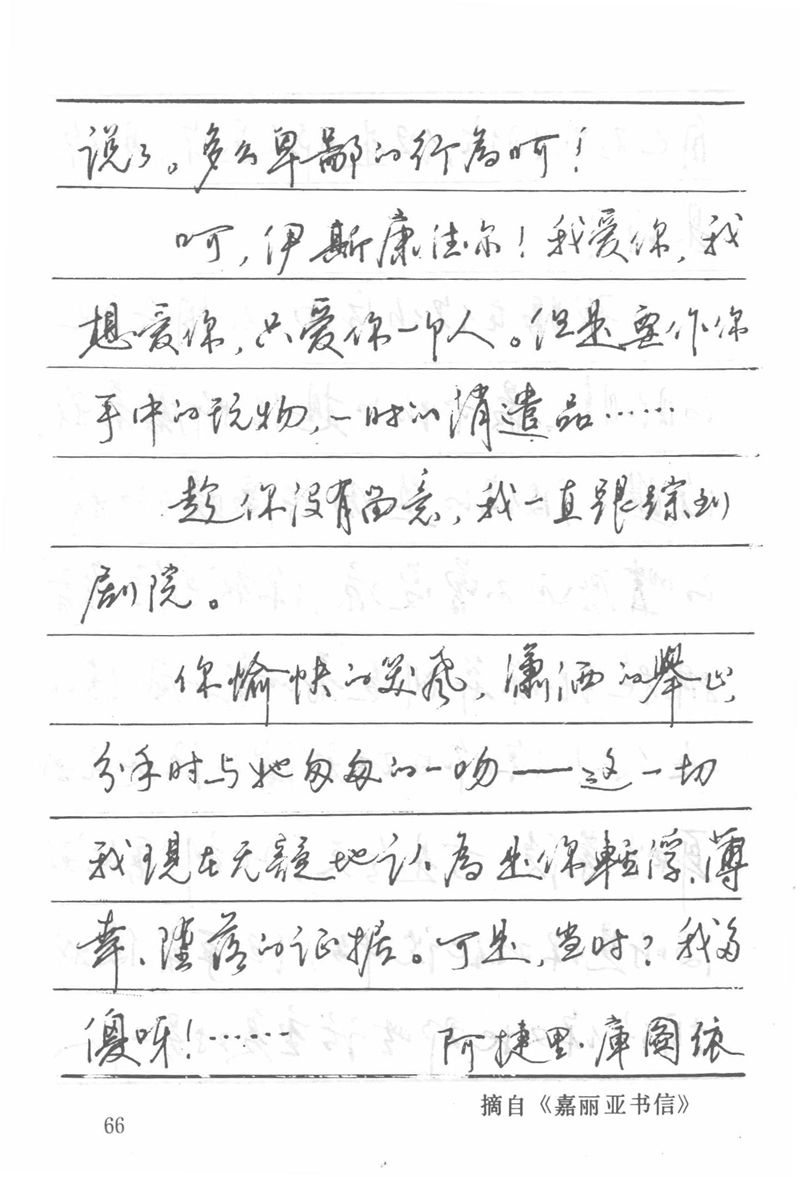 说了。多么卑鄙的行为呵！
呵，伊斯康德尔！我爱你，我
想爱你，只爱你一个人。但是要作你
手中的玩物，一时的消遣品……
趁你没有留意，我一直跟踪到
剧院。
你愉快的笑声，潇洒的舉止，
分手时与她匆匆的一吻——这一切
我现在无疑地认为是你輕浮、薄
幸、堕落的证据。可是，当时？我多
傻呀！…… 阿捷里·庫图依
摘自《嘉丽亚书信》
66